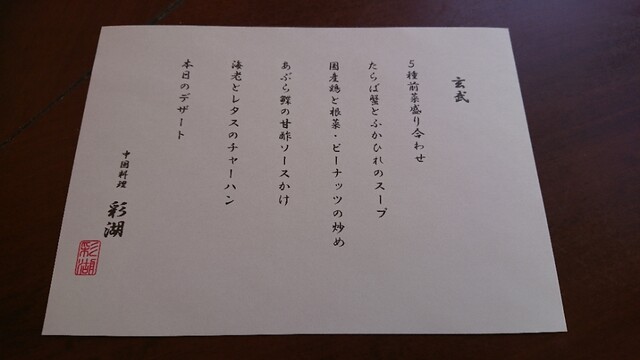 玄武
5種前菜盛り合わせ
たらば蟹とふかひれのスープ
国産鶏と根菜・ピーナッツの炒め
あぶら鰈の甘酢ソースかけ
海老とレタスのチャーハン
本日のデザート
中国料理 彩湖
彩湖